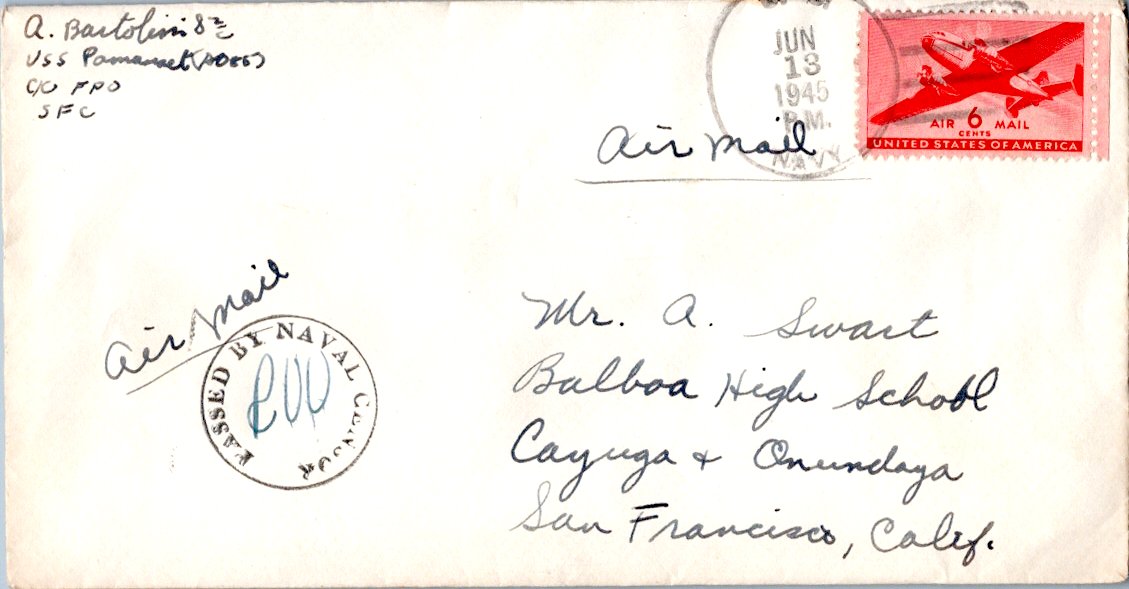 A. Bartolini S 2/c
USS Pamanset (AO85)
C/O FPO
SFC
JUN
13
1945
P.M.
NAVY
AIR 6 MAIL
CENTS
UNITED STATES OF AMERICA
Air Mail
Air Mail
PASSED BY NAVAL CENSOR
Mr. A. Swart
Balboa High School
Cayuga + Onundaga
San Francisco, Calif.